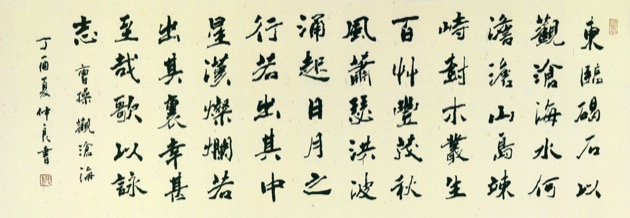 東臨碣石以
觀滄海水何
澹澹山島竦
峙樹木叢生
百艸豐茂秋
風蕭瑟洪波
涌起日月之
行若出其中
星漢燦爛若
出其裏幸甚
至哉歌以詠
志 曹操 觀滄海
丁酉夏仲良書